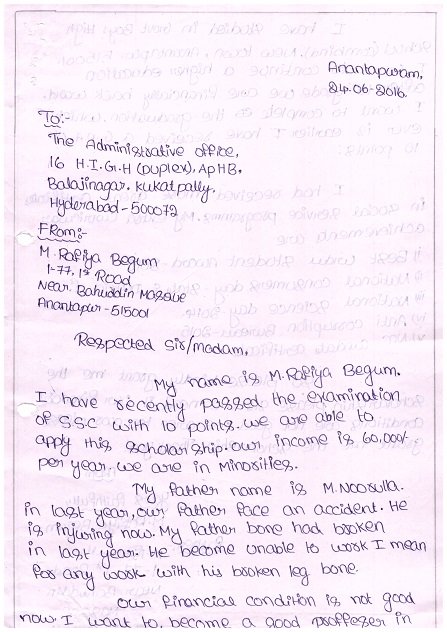 Anantapuram,
24.06.2016.
To:-
The Administrative office,
16 H.I.G.H (Duplex), APHB,
Balajinagar. Kukatpally.
Hyderabad-500072
FRom:-
M. Rafiya Begum
1-77, 1st Road
Near Bahuddin Mosque
Anantapur-515001
Respected Sir/madam,
My name is M.Rafiya Begum.
I have recently passed the examination
of SSC with 10 points. we are able to
apply this scholarship. our income is 60,000/-
per year. we are in Minorities.
My father name is M.Noorulla.
in last year, our father face an accident. He
is injuring now. My father bone had broken
in last year. He become unable to work I mean
for any work with his broken leg bone.
our financial condition is not good
now. I want to become a good proffeser in